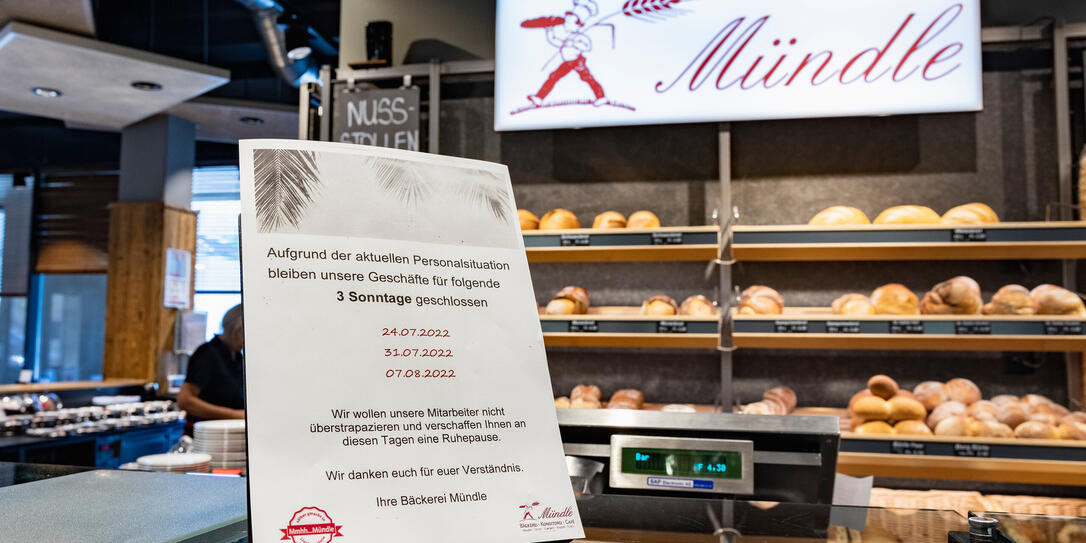 Mündle
NUSS-
STOLLEN
Aufgrund der aktuellen Personalsituation
bleiben unsere Geschäfte für folgende
3 Sonntage geschlossen
24.07.2022
31.07.2022
07.08.2022
Wir wollen unsere Mitarbeiter nicht
überstrapazieren und verschaffen Ihnen an
diesen Tagen eine Ruhepause.
Wir danken euch für euer Verständnis.
Ihre Bäckerei Mündle
Mmhh...Mündle
Mündle
BÄCKEREI · KONDITOREI · CAFÉ
Bar
4.30
SAF